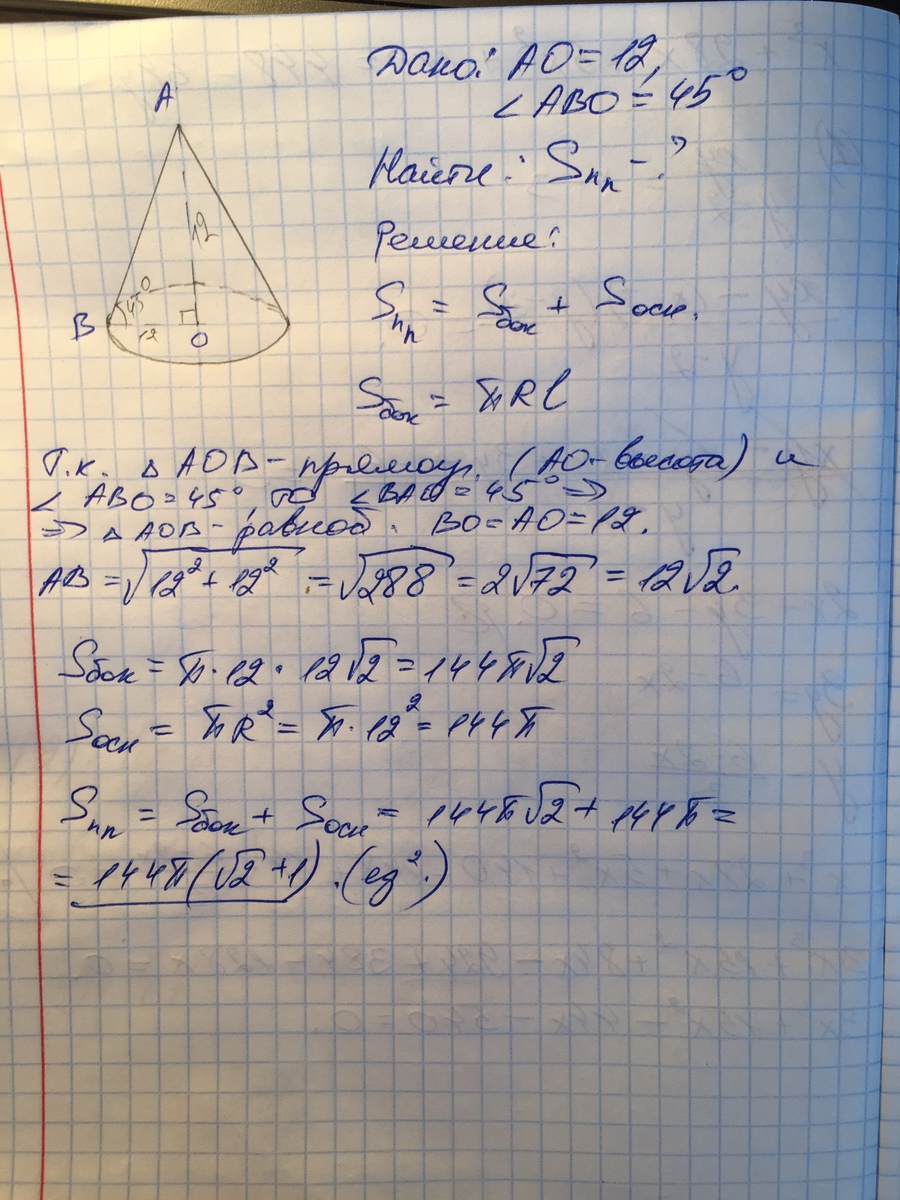 Дано: AO = 12,
∠ABO = 45°
Найти: Sпп - ?
Решение:
Sпп = Sбок + Sосн.
Sбок = πRl
A
12
45°
B
12
O
Т.к. △ AOB - прямоуг. (AO - высота) и
∠ ABO = 45°, то ∠BAO = 45° ⇒
⇒ △ AOB - равноб. BO = AO = 12.
AB = √(12² + 12²) = √288 = 2√72 = 12√2.
Sбок = π · 12 · 12√2 = 144π√2
Sосн = πR² = π · 12² = 144π
Sпп = Sбок + Sосн = 144π√2 + 144π =
= 144π(√2 + 1) . (ед².)